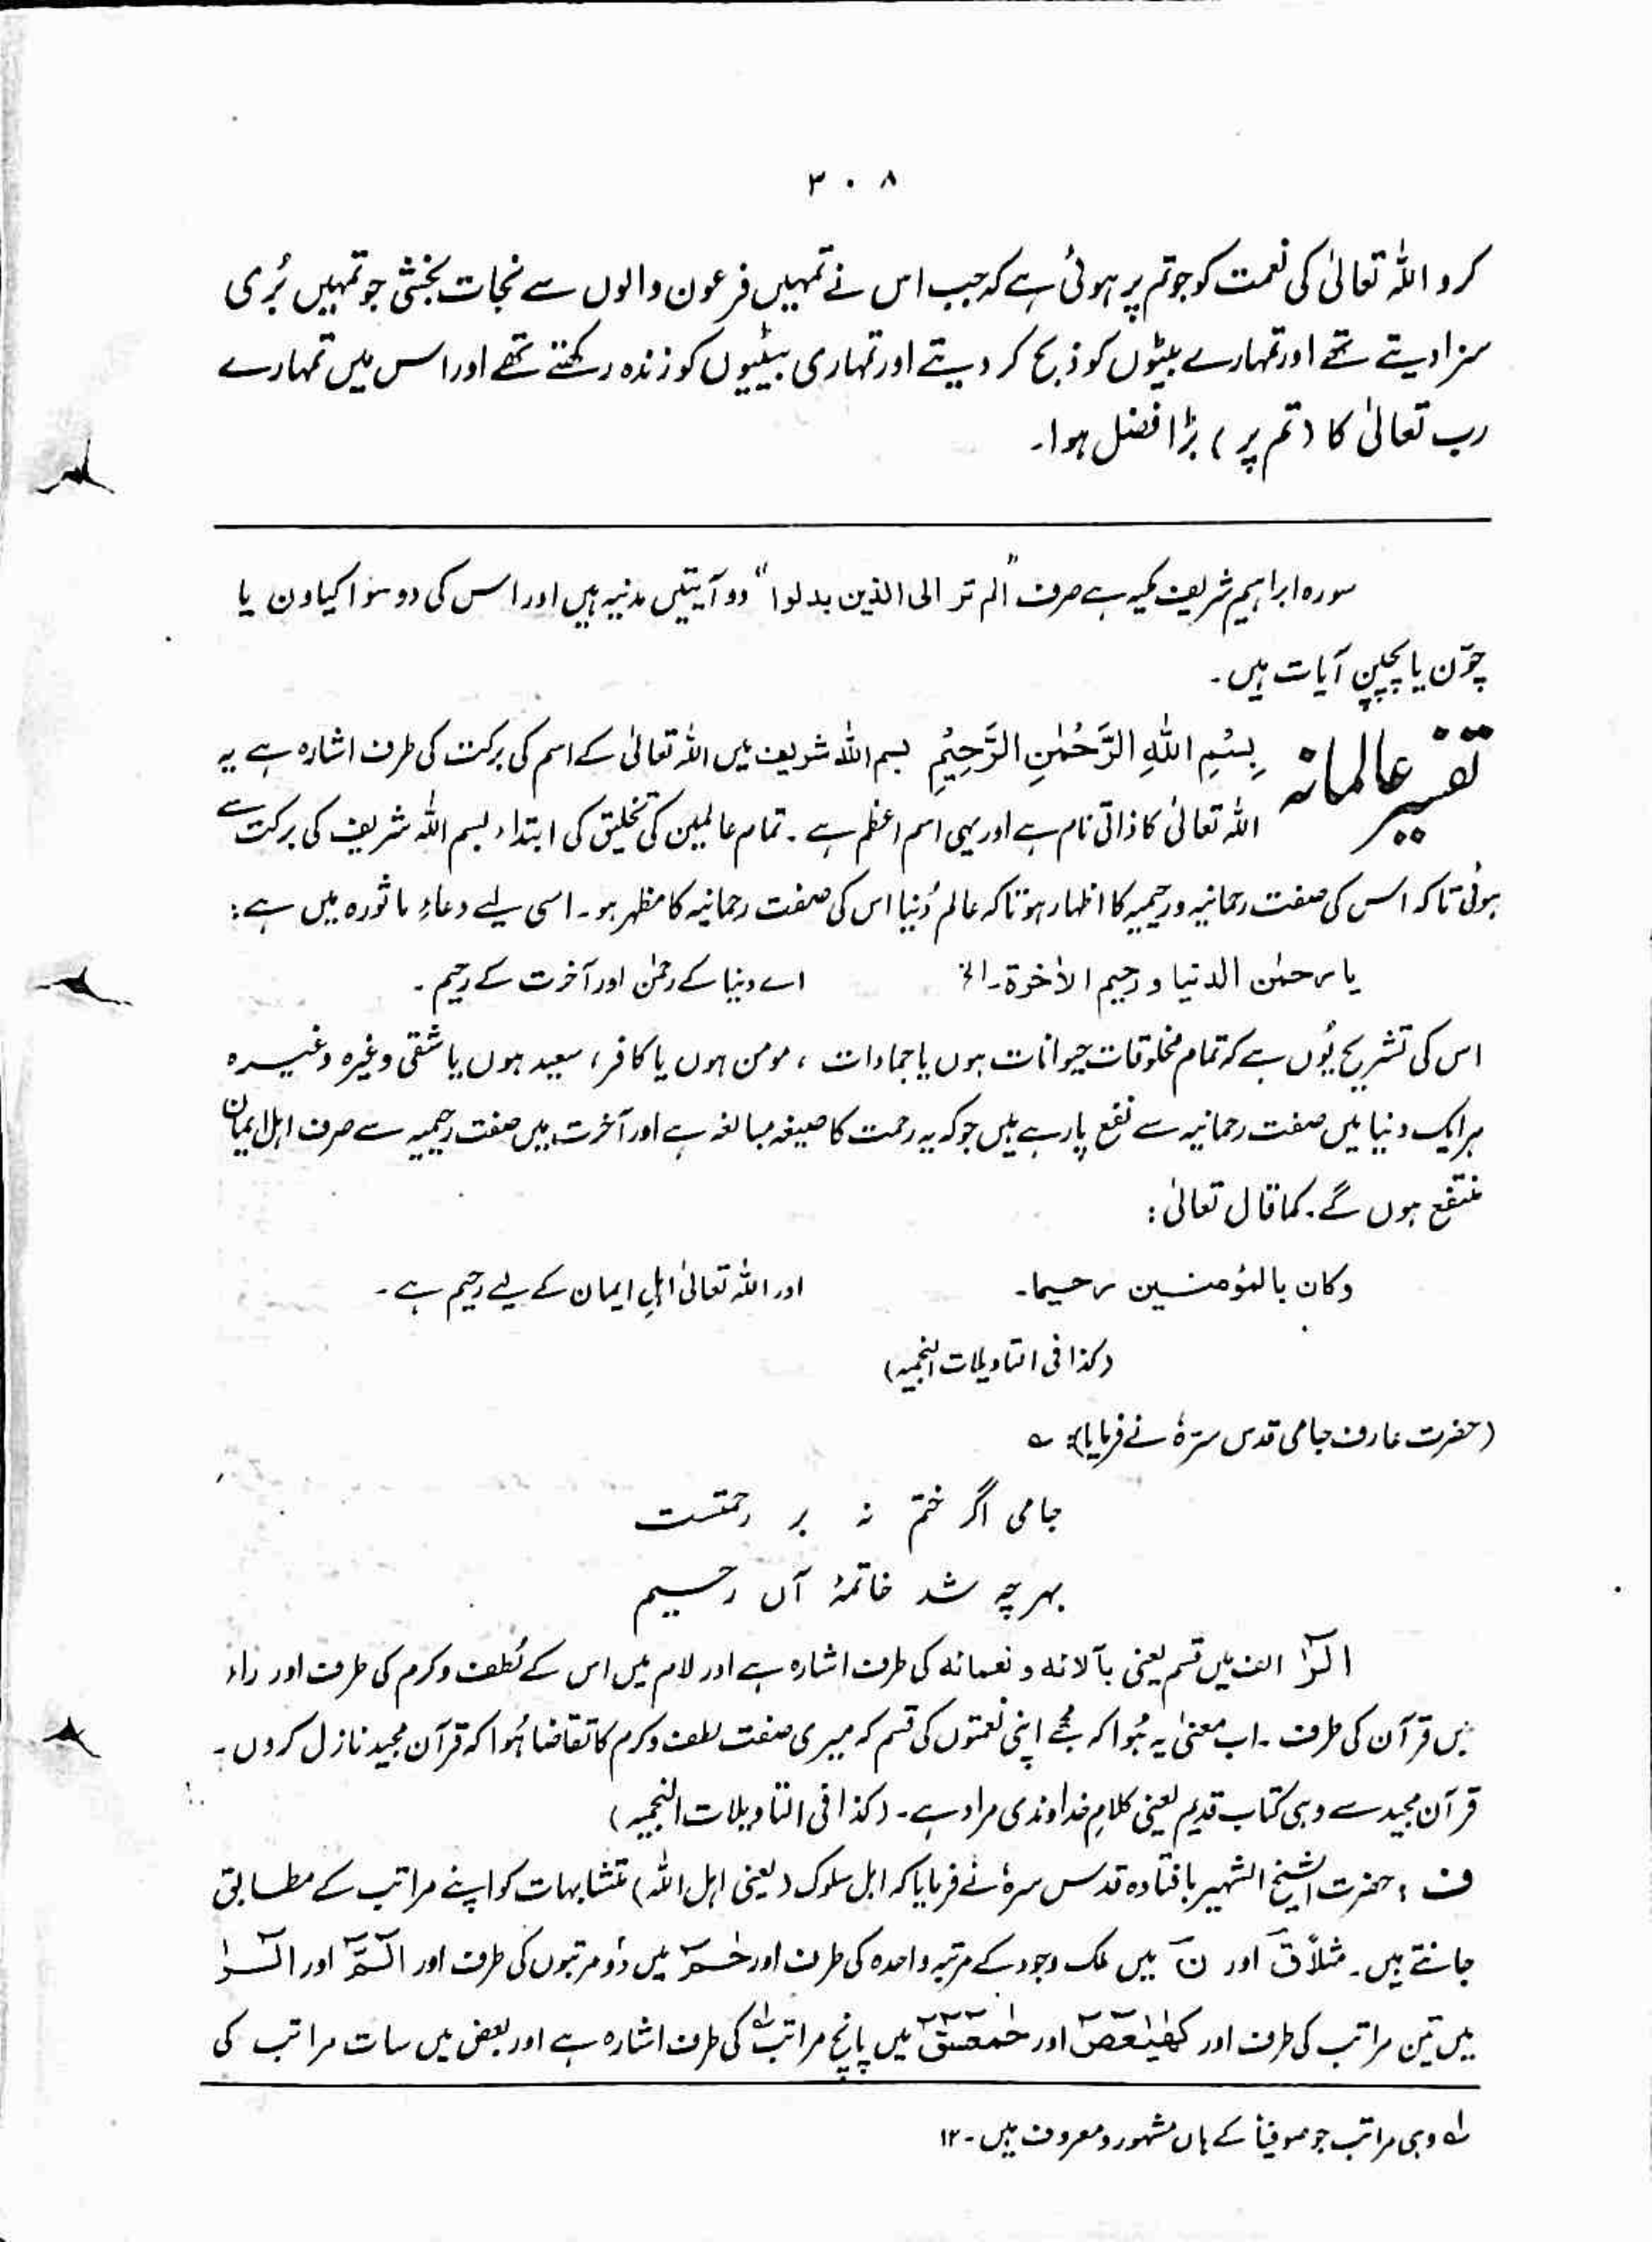 ۳۰۸
کرو اللہ تعالیٰ کی نعمت کو جو تم پر ہوئی ہے کہ جب اس نے تمہیں فرعون والوں سے نجات بخشی جو تمہیں بُری
سزا دیتے تھے اور تمہارے بیٹوں کو ذبح کر دیتے اور تمہاری بیٹیوں کو زندہ رکھتے تھے اور اس میں تمہارے
رب تعالیٰ کا (تم پر) بڑا فضل ہوا۔
سورہ ابراہیم شریف مکیہ ہے صرف "الم تر الی الذین بدلوا" دو آیتیں مدنیہ ہیں اور اس کی دو سوا کیاون یا
چوّن یا پچپن آیات ہیں۔
تفسیر عالمانہ بِسْمِ اللهِ الرَّحْمٰنِ الرَّحِيْمِ بسم اللہ شریف میں اللہ تعالیٰ کے اسم کی برکت کی طرف اشارہ ہے یہ
اللہ تعالیٰ کا ذاتی نام ہے اور یہی اسم اعظم ہے۔ تمام عالمین کی تخلیق کی ابتداء بسم اللہ شریف کی برکت سے
ہوئی تاکہ اس کی صفت رحمانیہ و رحیمیہ کا اظہار ہو تاکہ عالمِ دُنیا اس کی صفت رحمانیہ کا مظہر ہو۔ اسی لیے دعاءِ ماثورہ میں ہے:
یا رحمٰن الدنیا و رحیم الاٰخرۃ۔ الخ اے دنیا کے رحمٰن اور آخرت کے رحیم۔
اس کی تشریح یُوں ہے کہ تمام مخلوقات حیوانات ہوں یا جمادات، مومن ہوں یا کافر، سعید ہوں یا شقی وغیرہ وغیرہ
ہر ایک دنیا میں صفت رحمانیہ سے نفع پا رہے ہیں جو کہ یہ رحمت کا صیغہ مبالغہ ہے اور آخرت میں صفت رحیمیہ سے صرف اہل ایمان
منتفع ہوں گے۔ کما قال تعالیٰ:
وکان بالمؤمنین رحیما۔ اور اللہ تعالیٰ اہلِ ایمان کے لیے رحیم ہے۔
(کذا فی التاویلات النجمیہ)
(حضرت عارف جامی قدس سرّہٗ نے فرمایا): ؎
جامی اگر ختم نہ بر رحمتست
بہر چہ شد خاتمۂ آں رحیم
الٓرٰ الف میں قسم یعنی بآلائہ و نعمائہ کی طرف اشارہ ہے اور لام میں اس کے لُطف و کرم کی طرف اور راء
میں قرآن کی طرف۔ اب معنیٰ یہ ہُوا کہ مجھے اپنی نعمتوں کی قسم کہ میری صفت لطف و کرم کا تقاضا ہُوا کہ قرآن مجید نازل کروں۔
قرآن مجید سے وہی کتاب قدیم یعنی کلامِ خداوندی مراد ہے۔ (کذا فی التاویلات النجمیہ)
ف: حضرت الشیخ الشہیر بافتادہ قدس سرہٗ نے فرمایا کہ اہل سلوک (یعنی اہل اللہ) متشابہات کو اپنے مراتب کے مطابق
جانتے ہیں۔ مثلاً قٓ اور نٓ میں ملک وجود کے مرتبہ واحدہ کی طرف اور حٰمٓ میں دو مرتبوں کی طرف اور الٓمّٓ اور الٓرٰ
میں تین مراتب کی طرف اور کھٰیٰعٓصٓ اور حٰمٓعٓسٓقٓ میں پانچ مراتب لہ کی طرف اشارہ ہے اور بعض میں سات مراتب کی
لہ وہی مراتب جو صوفیاء کے ہاں مشہور و معروف ہیں۔ ۱۲